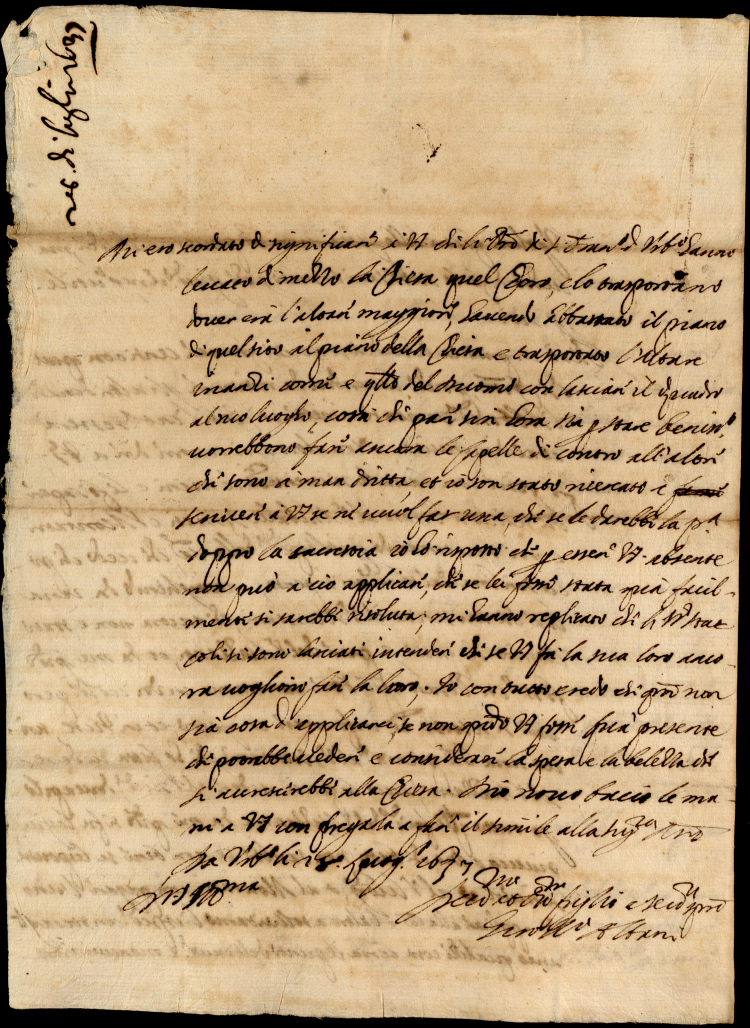 di luglio 1637
Mi ero scordato di significare à VS che li di S. Fran.o d'Urb.o hanno
levato di mezzo la Chiesa quel Choro, e lo trasportano
dover era l'altare maggiore, havendo abbassato il piano
di quel sito al piano della Chiesa e trasportato l'altare
inanzi come è qllo del Duomo con lasciare il quadro
al suo luogo, cosa che pare sin hora sia p stare benis.o
vorrebbono fare ancora le Capelle di contro all'altre
che sono à man dritta, et io son stato ricercato à
scrivere à VS se ne vuol far una, che se le darebbe la p.a
doppo la sacrestia io hò risposto che p essere VS absente
non può a cio applicare, che se lei fosse stata quà facil-
mente si sarebbe risoluta; mi hanno replicato che li SS.ri Stac
coli si sono lasciati intendere che se VS fà la sua loro anco-
ra vogliono fare la loro. Io con tutto credo che non
sia cosa d'applicarci, se non qndo VS fosse quà presente
che potrebbe vedere e considerare la spesa e la belezza che
si accrescerebbe alla Chiesa. Di novo bacio le ma-
ni a VS con pregarla a fare il simile alla Sig.ra
Da Urb.o li luglio 1637
figlio e
Albani